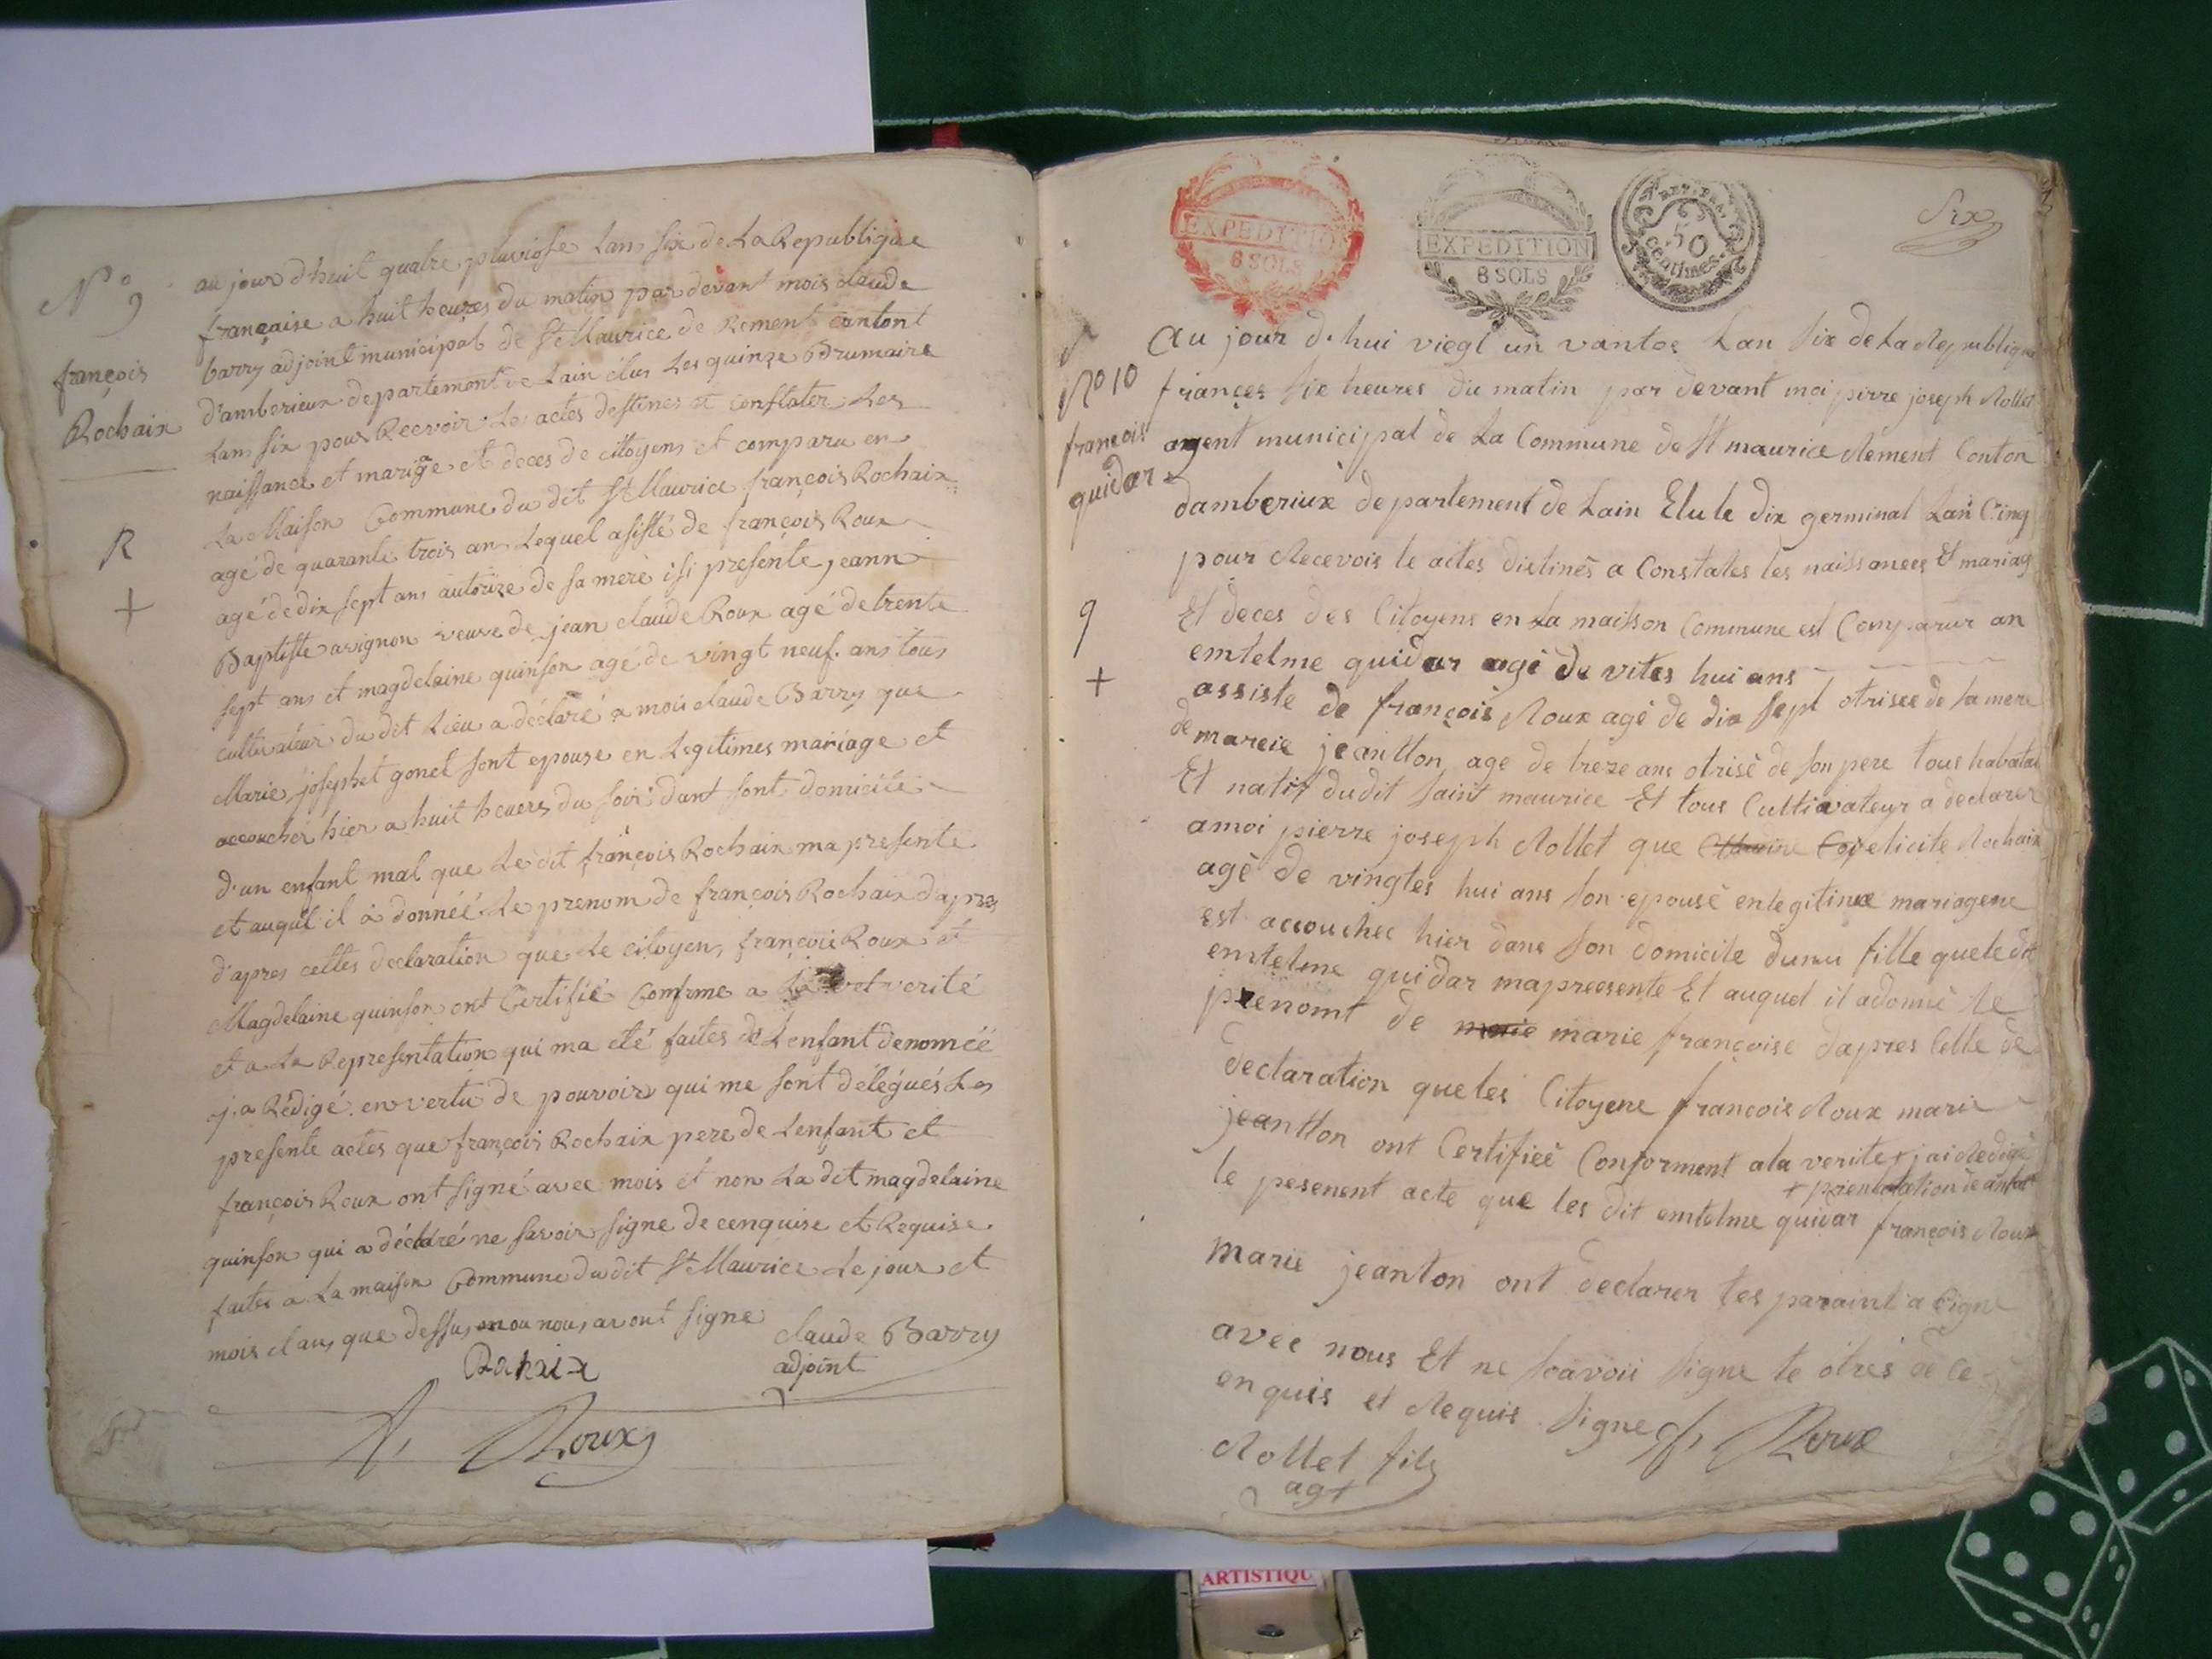 N° 9
françois
Rochaix
R
+
au jour d'huit quatre pluviosse Lans six de La Republique
française a huit heures du matin par devant mois claude
barry adjoint municipal de St Maurice de Rement cantont
d'amberieux departement de Lain élus Les quinze Brumaire
Lans six pour Recevoir Le actes destines et constater Les
naissance et mariage et deces de citoyens et comparu en
La Maison Commune du dit St Maurice françois Rochaix
agé de quarante trois ans Lequel asisté de françois Roux
agé de dix sept ans autorize de sa mere isi presente jeann
Baptiste avignon veuve de jean claude Roux agé de trente
sept ans et magdelaine quinson agé de vingt neuf ans tous
cultivateur du dit Lieu a déclaré a moii claude Barry que
Marie josephet gonet sont epouse en Legitimes mariage et
accoucher hier a huit heuers du soir dant sont domicile
d'un enfant mal que Le dit françois Rochaix ma presente
et auquil il à donnéé Le prenom de françois Rochaix dapres
d'apres cettes declaration que Le citoyens françois Roux et
Magdelaine quinson ont Certifié Comfrme a verité
et a La Representation qui ma eté faites de Lenfant denoméé
j.a Rédigé en vertu de pouvoir qui me sont délégués Les
presente actes que françois Rochaix pere de Lenfant et
françois Roux ont signé avec mois et non La dit magdelaine
quinson qui a déclaré ne savoir signe de cenquise et Requise
faites a La maison Commune du dit St Maurice Le jour et
mois et ans que dessus nous avont signe
claude Barry
adjoint
f. Roux
EXPEDITION
8 SOLS
EXPEDITION
8 SOLS
REP. FRA.
50
centimes
Six
N° 10
francois
quidar
9
+
Au jour d.hui viegt un vantos Lan six de La Republique
françes sie heures du matin par devant moi pirre joseph Rollet
agent municipal de La Commune de St maurice Rement Conton
damberiux departement de Lain Elu le dix germinal Lan Cinq
pour Recevois le actes distinés a Constates les naissances Et mariags
Et deces des Citoyens en La maisson Commune est Comparur an
emtelme quidar agé de vites hui ans
assiste de françois Roux agé de dix sept otrisee de sa mere
de mareie jeantton age de treze ans otrisé de son pere tous habatat
Et natif dudit saint maurice Et tous Cultivateur a declarer
amoi pierre joseph Rollet que felicite Rochaix
agé de vingtes hui ans son epousé en legitime mariagene
est accouchee hier dans son domicile dunu fille que le dit
emtelme quidar mapreesente Et auquel il adonné Le
prenomt de marie marie françoise dapres Celle de
declaration que les Citoyene françois Roux marie
jeantton ont Certifieé Conforment ala verite + jai Redigé
+ prientatation de anfant
le pesenent acte que les dit emtelme quidar françois Roux
Marie jeanton ont declarer les paraint a Signe
avec nous Et ne scavoii signe le otres de ce
enquis et Requis signe f. Roux
Rollet fils
agt
ARTISTIQU